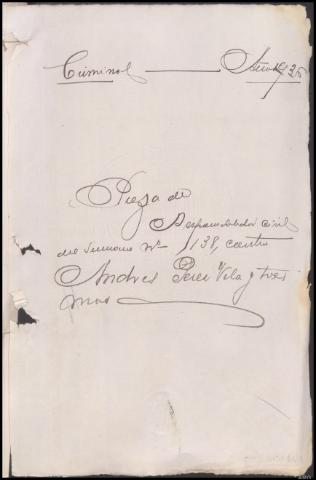 Criminal
Pieza de
Responsabilidad Civil
del Sumario Nº 138, contra
Andres Perez Vila y tres
mas